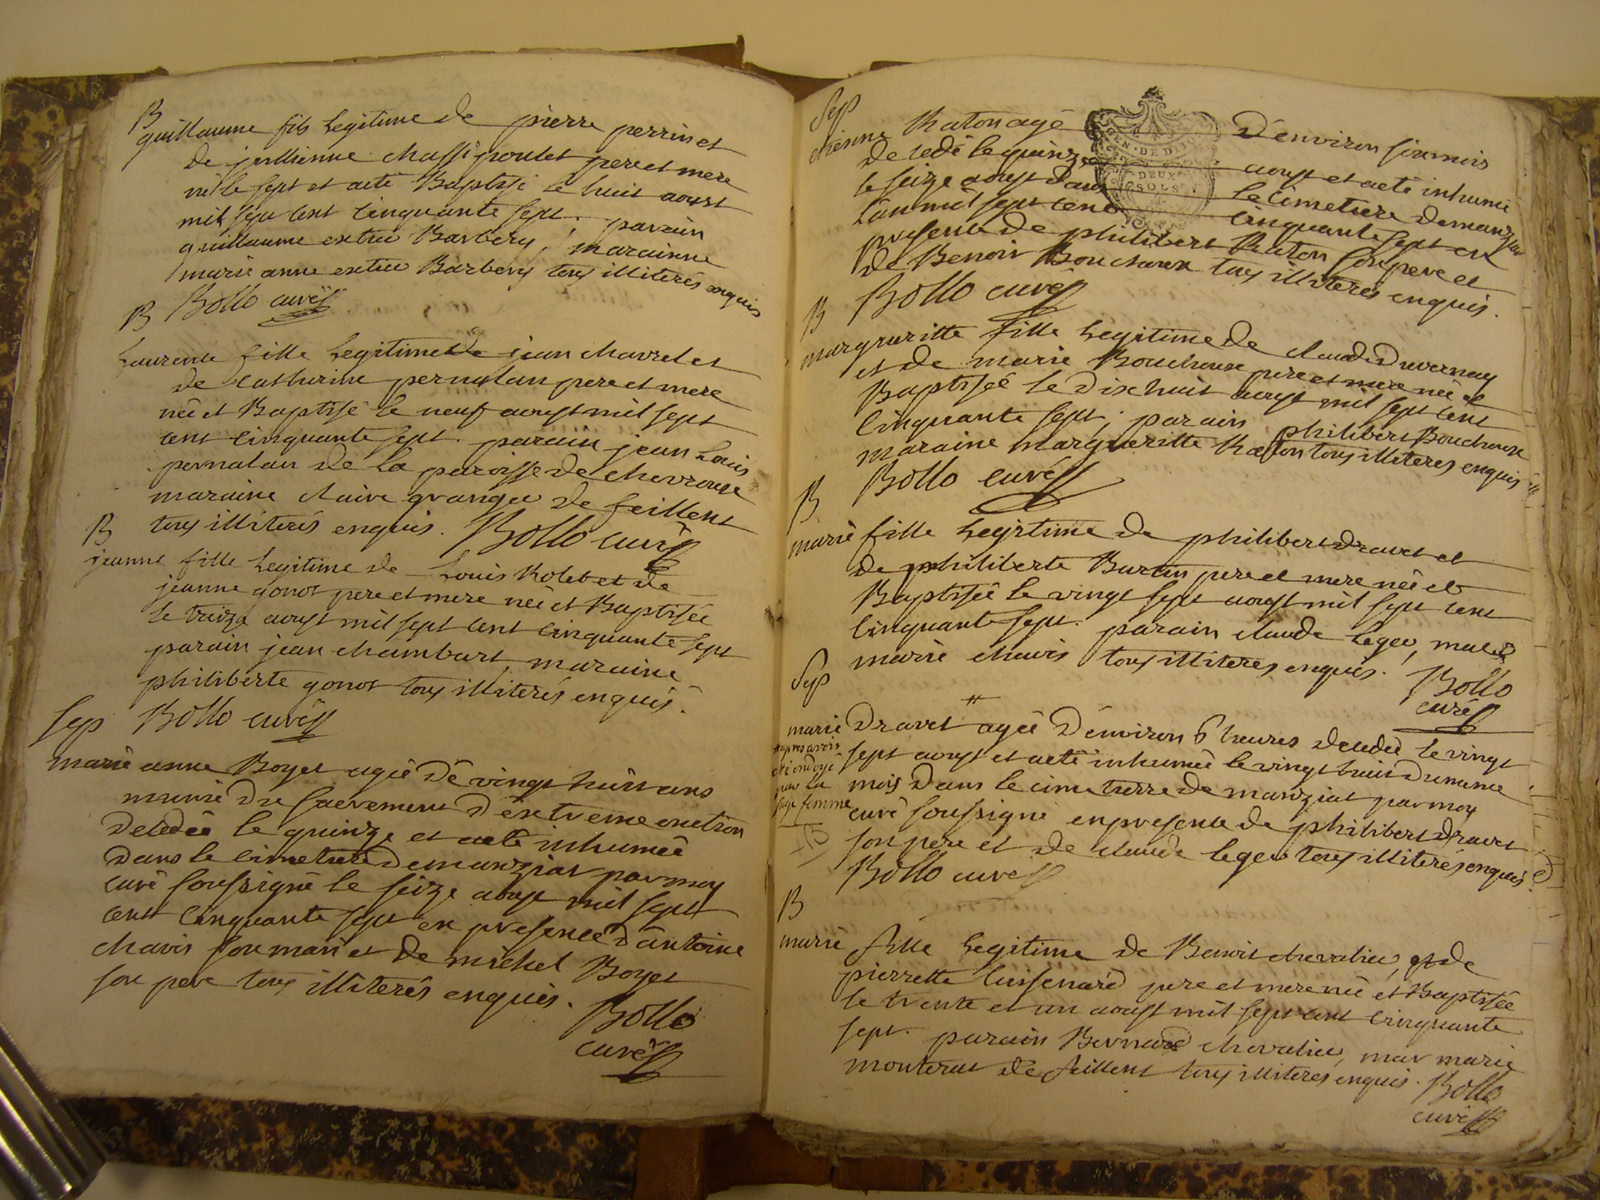 B
guillaume fils legitime de pierre perrin et
de jullienne chassipoulet pere et mere
né le sept et aeté Baptisé le huit aoust
mil sept cent cinquante sept, parain
guillaume extier Barbery, maraine
marie anne extier Barbery tous illiterés enquis
Bollo curé
B
Laurence fille legitime de jean chavrel et
de catherine pernatan pere et mere
née et Baptisé le neuf aoust mil sept
cent cinquante sept. parain jean Louis
pernatan de la paroisse de chevroux
maraine claire grangee de feillens
tous illiterés enquis. Bollo curé
B
jeanne fille legitime de Louis Rolet et de
jeanne gonot pere et mere née et Baptisée
le treize aoust mil sept cent cinquante sept
parain jean chambart, maraine
philiberte gonot tous illiterés enquis.
Sep Bollo curé
marie anne Boyet agée dé vingt huit ans
munie du sacrement d'extreme onction
decedée le quinze et aeté inhumée
dans le cimetiere demanziat par moy
curé soussigné le seize aoust mil sept
cent cinquante sept en presence d'antoine
chavis son mari et de michel Boyet
son pere tous illiterés enquis.
Bollo
curé
Sep
etienne Raton agé d'environ six mois
decedé le quinze aoust et aeté inhumé
le seize aoust dans le cimetiere demanziat
L'an mil sept cent cinquante sept en
presence de philibert Raton son pere et
de Benoit Bouchoux tous illiterés enquis.
Bollo curé
B
margueritte fille legitime de claude duvernay
et de marie Bouchoux pere et mere née et
Baptisée le dixhuit aoust mil sept cent
cinquante sept, parain philibert Bouchoux
maraine margueritte Raton tous illiterés enquis
Bollo curé
B
marie fille legitime de philibert dravet et
de philiberte Buran pere et mere née et
Baptisée le vingt sept aoust mil sept cent
cinquante sept. parain claude leger, mar
marie chavis tous illiterés enquis.
Bollo
curé
Sep
marie dravet agée d'environ 6 heures decedée le vingt
apres avoir
eté ondoyé
par la
sage femme
sept aoust et aeté inhumée le vingt huit du meme
mois dans le cimetiere de manziat par moy
curé soussigné en presence de philibert dravet
son pere et de claude leger tous illiterés enquis
Bollo curé
B
marie fille legitime de Benoit chevalier, et de
pierrette luisenard pere et mere née et Baptisée
le trente et un aoust mil sept cent cinquante
sept. parain Bernard chevalier, mar marie
monterat de feillens tous illiterés enquis. Bollo
curé